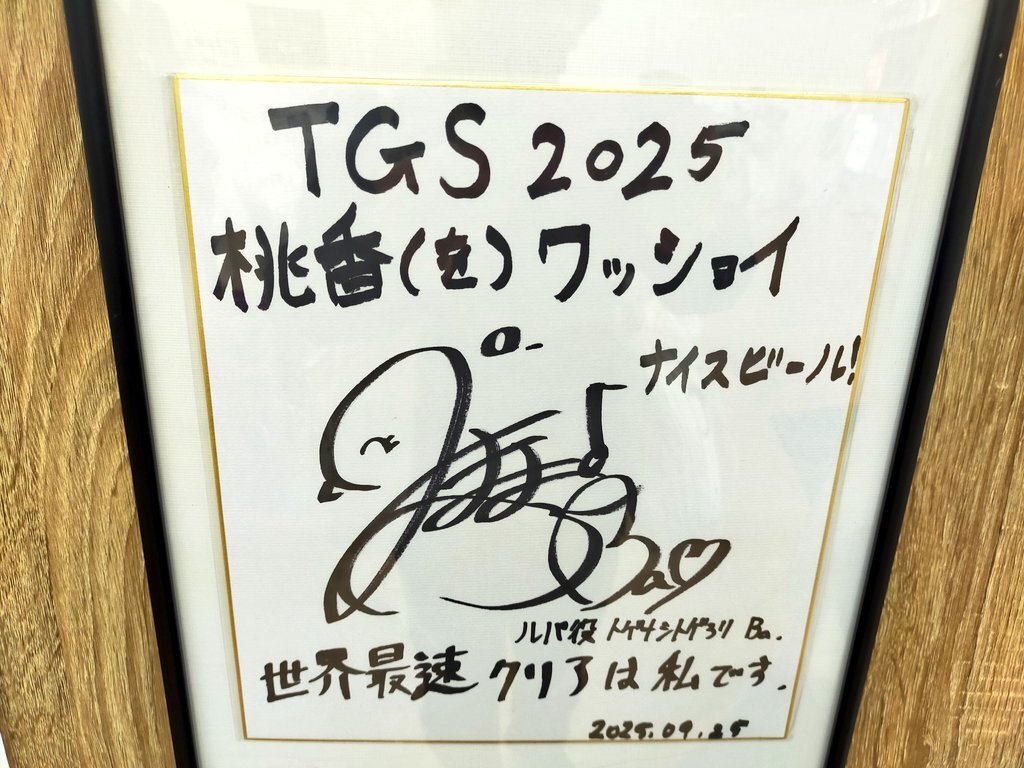 TGS 2025
桃香(を)ワッショイ
ナイスビール!
Ba
ルパ役 トゲナシトゲアリ Ba.
世界最速クリアは私です.
2025.09.25